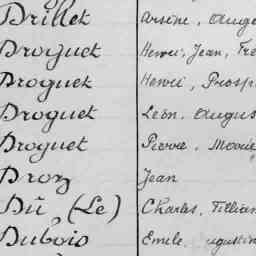 Drillet Arsène, Auge
Droguet Henri, Jean, Fre
Droguet Henri, Prosp
Droguet Léon, Augus
Droguet Pierre, Marie
Droz Jean
Dû, (Le) Charles, Tillian
Dubois Emile, ugustin